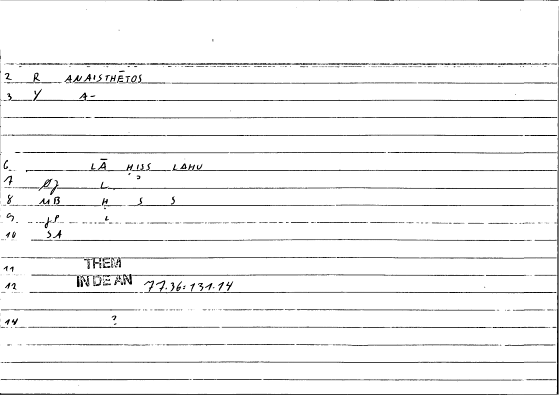 2 R ANAISTHĒTOS
3 Y A-
6 LĀ ḤISS LAHU
7 L
8 MB Ḥ S S
9 L
10 SA
11 THEM
12 IN DE AN 77.36:131.14
14 ?